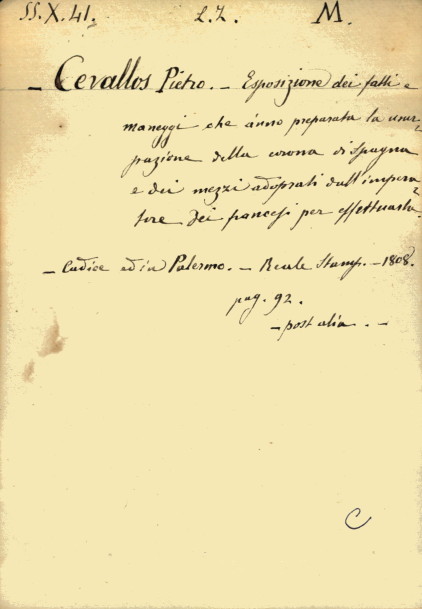 SS. X. 41. L. Z. M.
- Cevallos Pietro. - Esposizione dei fatti e
maneggi che ánno preparata la usur-
pazione della corona di Spagna
e dei mezzi adoprati dall'impera-
tore dei francesi per effettuarla.
- Cadice ed in Palermo. - Reale Stamp. - 1808.
pag. 92.
- post alia. -
C